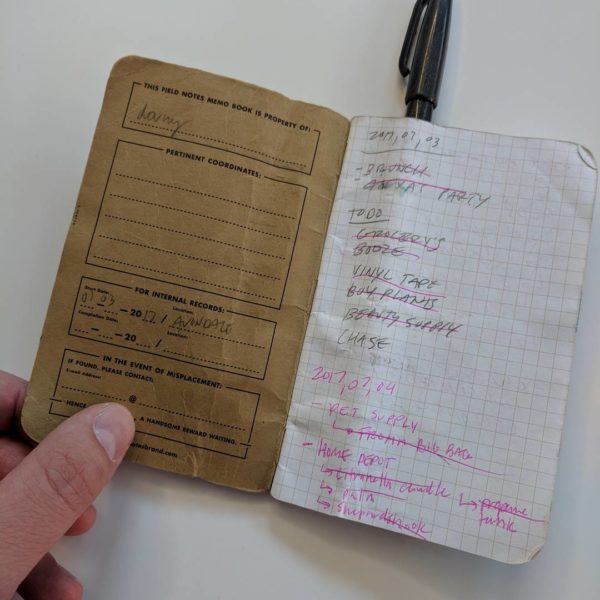 THIS FIELD NOTES MEMO BOOK IS PROPERTY OF:
PERTINENT COORDINATES:
FOR INTERNAL RECORDS:
Start Date: Location:
07 03 - 2017 / AVONDALE
Completion Date: Location:
- - 20 /
IN THE EVENT OF MISPLACEMENT:
IF FOUND, PLEASE CONTACT:
E-mail Address:
@
HENCE A HANDSOME REWARD WAITING.
2017, 07, 03
- BRUNCH
PARTY
TODO
GROCERY'S
BOOZE
VINYL TAPE
BUY PLANTS
BEAUTY SUPPLY
CHASE
2017, 07, 04
- PET SUPPLY
↳ BIG BACK
- HOME DEPOT
↳ citronella candle ↳ propane
↳ palm tank
↳ shepards hook